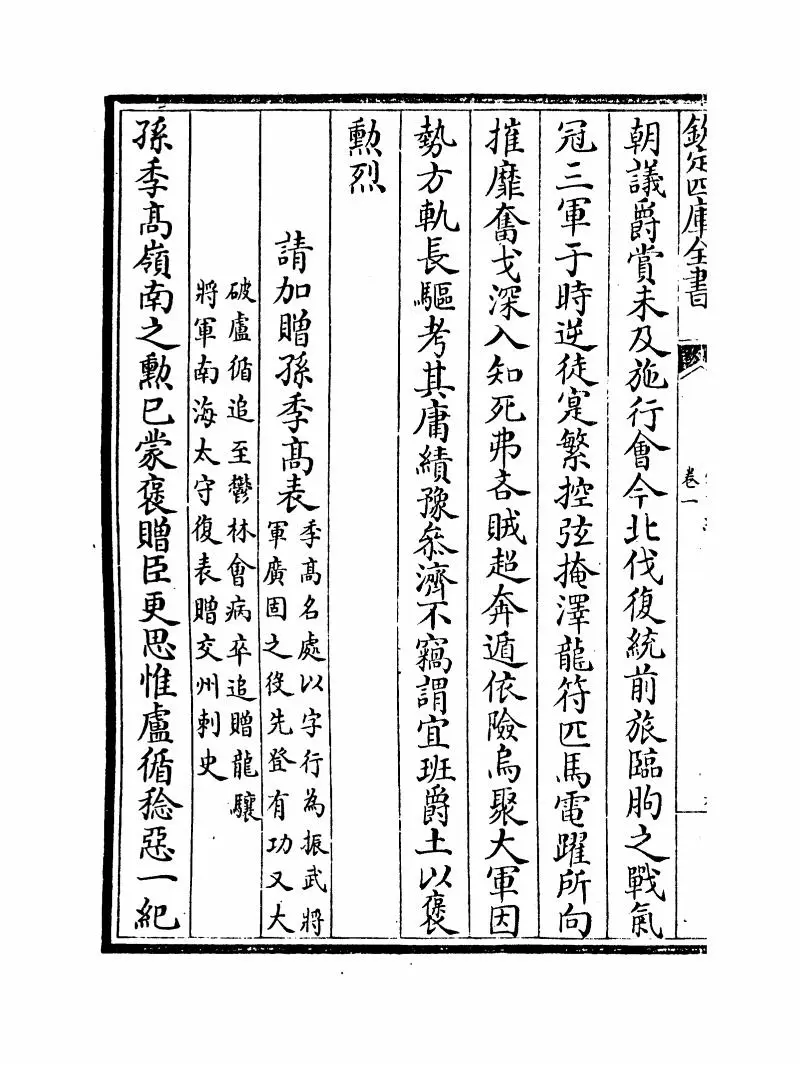 欽定四庫全書
卷一
朝議爵賞未及施行會今北伐復統前旅臨朐之戰氣
冠三軍于時逆徒寔繁控弦掩澤龍符匹馬電躍所向
摧靡奮戈深入知死弗吝賊超奔遁依險鳥聚大軍因
勢方軌長驅考其庸績豫叅濟不竊謂宜班爵土以褒
勲烈
請加贈孫季髙表
季髙名處以字行為振武將
軍廣固之役先登有功又大
破盧循追至鬱林會病卒追贈龍驤
將軍南海太守復表贈交州刺史
孫季髙嶺南之勲已蒙褒贈臣更思惟盧循稔惡一紀